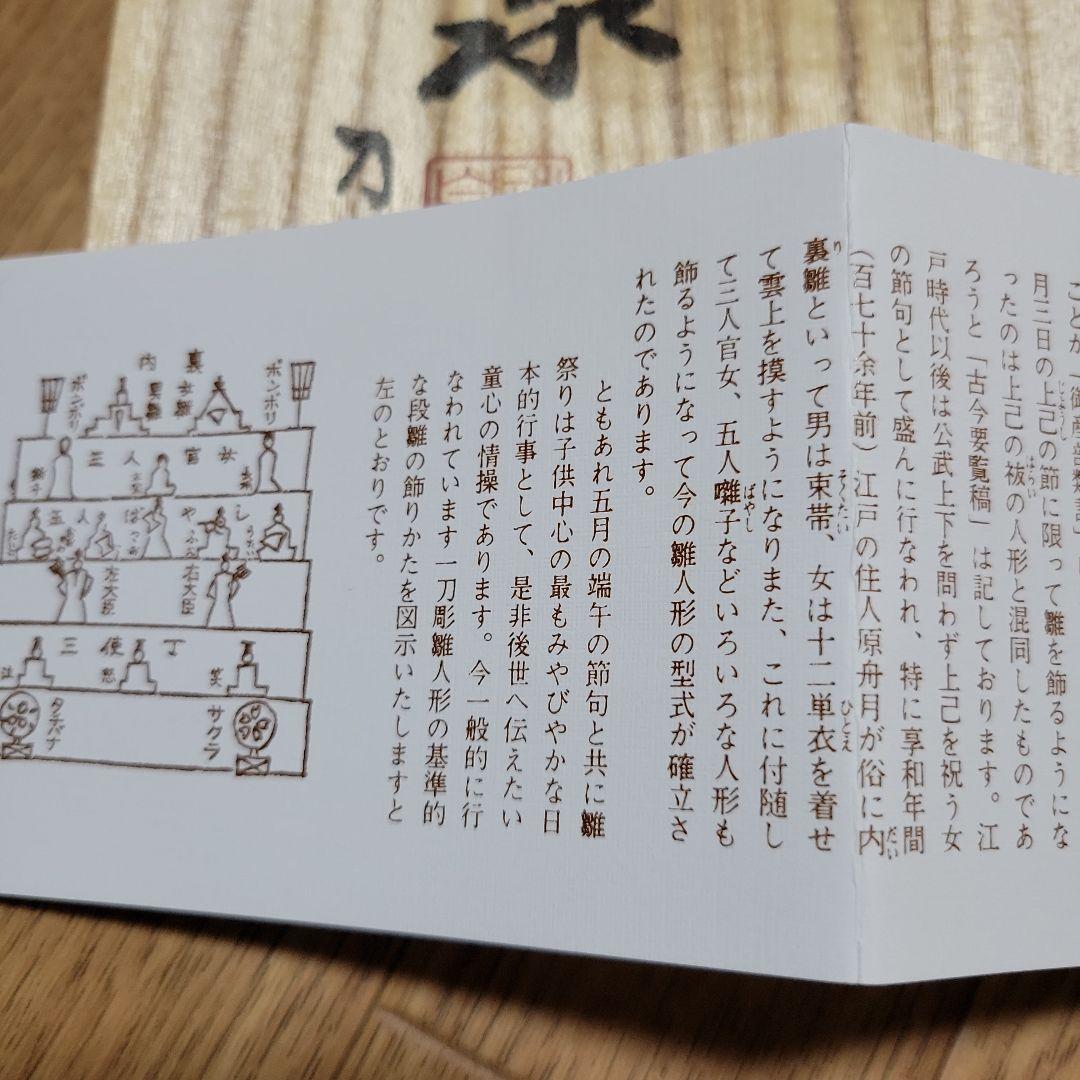 月三日の上己の節に限って雛を飾るようにな
ったのは上己の祓の人形と混同したものであ
ろうと「古今要覧稿」は記しております。江
戸時代以後は公武上下を問わず上己を祝う女
の節句として盛んに行なわれ、特に享和年間
(百七十余年前)江戸の住人原舟月が俗に内
裏雛といって男は束帯、女は十二単衣を着せ
て雲上を摸すようになりまた、これに付随し
て三人官女、五人囃子などいろいろな人形も
飾るようになって今の雛人形の型式が確立さ
れたのであります。
ともあれ五月の端午の節句と共に雛
祭りは子供中心の最もみやびやかな日
本的行事として、是非後世へ伝えたい
童心の情操であります。今一般的に行
なわれています一刀彫雛人形の基準的
な段雛の飾りかたを図示いたしますと
左のとおりです。
ボンボリ
裏
内
女雛
男雛
ボンボリ
三人官女
五人ばやし
右大臣
左大臣
三使丁
笑
怒
泣
サクラ
タチバナ
刀